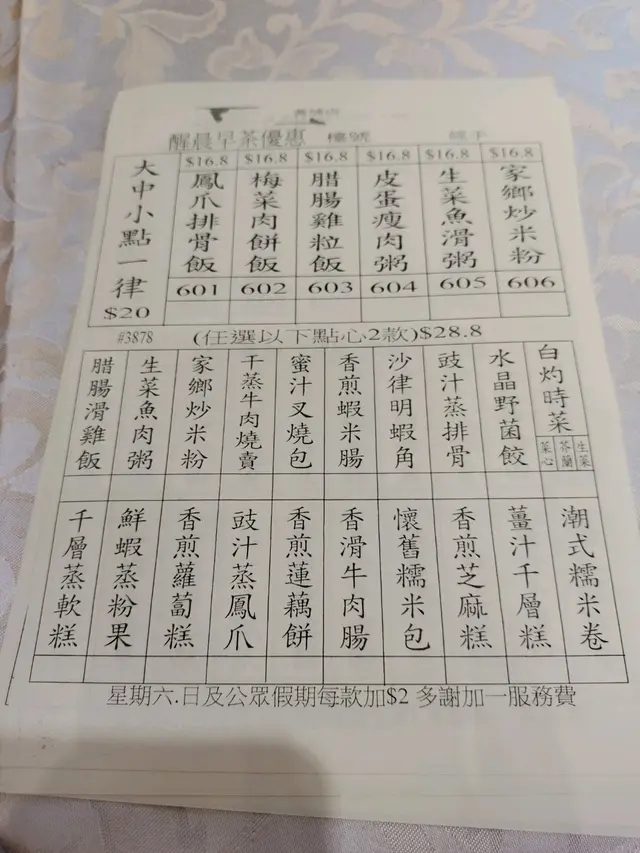 醒晨早茶優惠 樓號
大中小點一律
$20
$16.8 $16.8 $16.8 $16.8 $16.8 $16.8
鳳爪排骨飯
梅菜肉餅飯
腊腸雞粒飯
皮蛋瘦肉粥
生菜魚滑粥
家鄉炒米粉
601 602 603 604 605 606
#3878 (任選以下點心2款)$28.8
腊腸滑雞飯
生菜魚肉粥
家鄉炒米粉
干蒸牛肉燒賣
蜜汁叉燒包
香煎蝦米腸
沙律明蝦角
豉汁蒸排骨
水晶野菌餃
白灼時菜
菜心
芥蘭
生菜
千層蒸軟糕
鮮蝦蒸粉果
香煎蘿蔔糕
豉汁蒸鳳爪
香煎蓮藕餅
香滑牛肉腸
懷舊糯米包
香煎芝麻糕
薑汁千層糕
潮式糯米卷
星期六.日及公眾假期每款加$2 多謝加一服務費